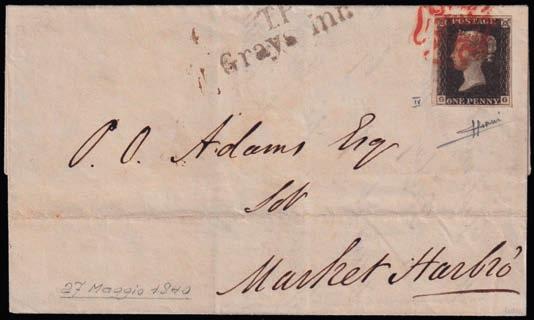 T.P
Grays Inn
POSTAGE
G G
ONE PENNY
P. O. Adams Esq
Sol
Market Harbro'
27 Maggio 1840